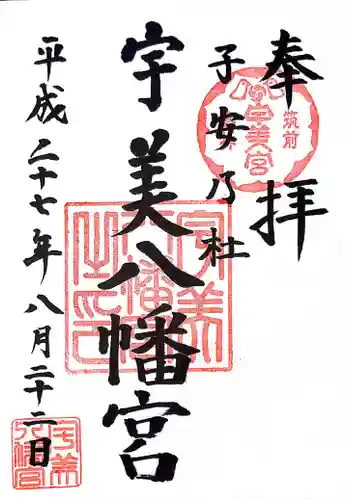 奉拝
子安乃杜
宇美八幡宮
平成二十七年八月二十二日
筑前
宇美宮
宇美
八幡宮
之印
宇美
八幡宮